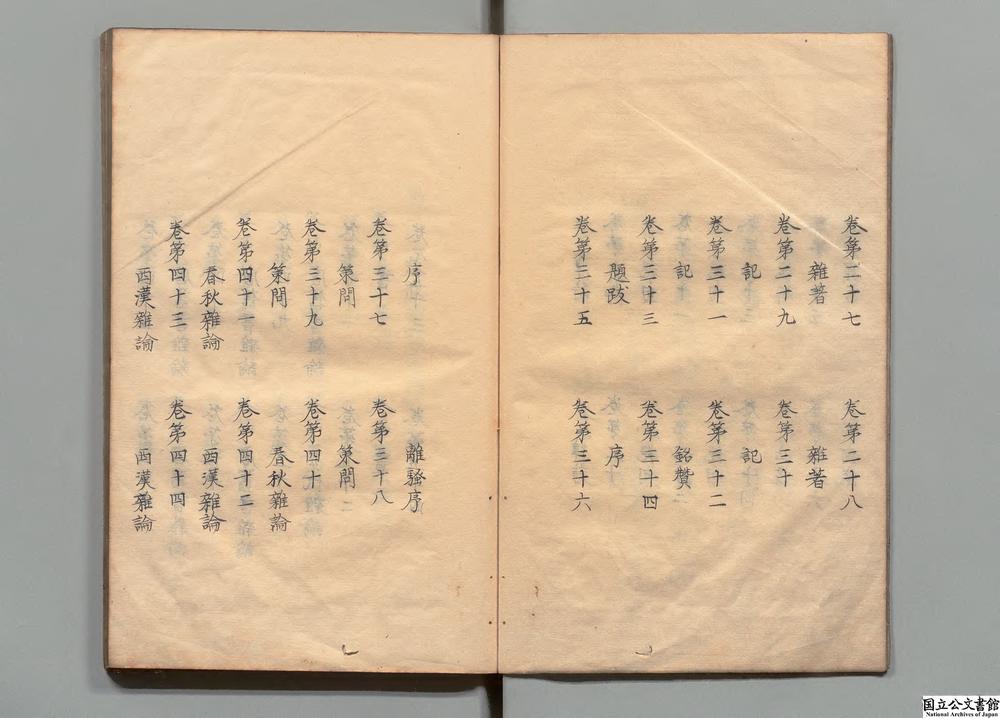 卷第二十七 卷第二十八
雜著 雜著
卷第二十九 卷第三十
記 記
卷第三十一 卷第三十二
記 銘贊
卷第三十三 卷第三十四
題跋 序
卷第三十五 卷第三十六
序 離騷序
卷第三十七 卷第三十八
策問 策問
卷第三十九 卷第四十
策問 春秋雜論
卷第四十一 卷第四十二
春秋雜論 西漢雜論
卷第四十三 卷第四十四
西漢雜論 西漢雜論
国立公文書館
National Archives of Japan